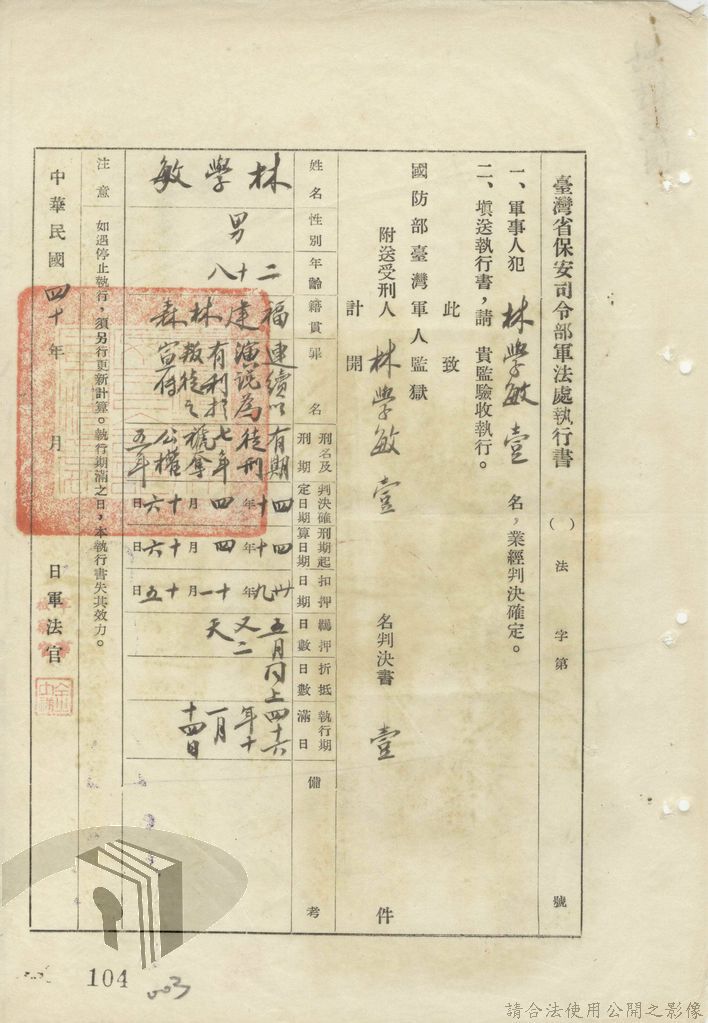 臺灣省保安司令部軍法處執行書
( )法字第 號
一、軍事人犯 林學敏 壹 名,業經判決確定。
二、填送執行書,請 貴監驗收執行。
此致
國防部臺灣軍人監獄
附送受刑人 林學敏 壹 名判決書 壹 件
計開
姓名
林學敏
性別
男
年齡
二十八
籍貫
福建林森
罪名
連續以演說為有利於叛徒之宣傳
刑名及刑期
有期徒刑七年褫奪公權五年
判決確定日期
四十年四月十六日
刑期起算日期
四十年四月十六日
扣押日期
卅九年十一月十五日
羈押日數
五月又二天
折抵日數
同上
執行期滿日
四十六年十一月十四日
備考
注意 如遇停止執行,須另行更新計算。執行期滿之日,本執行書失其效力。
中華民國 四十年 月 日
軍法官
104
003
請合法使用公開之影像